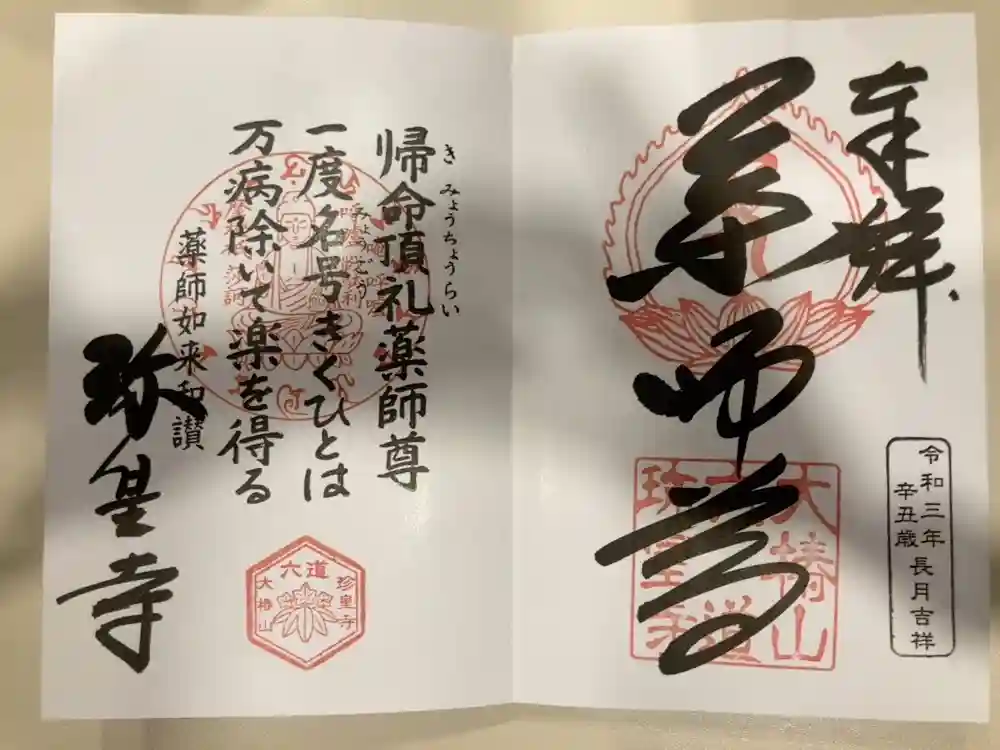 奉拝
薬師尊
大椿山
六道
珍皇寺
令和三年
辛丑歳
長月吉祥
帰命頂礼薬師尊
き みょうちょうらい
一度名号きくひとは
みょうごう
万病除いて楽を得る
薬師如来和讃
珍皇寺
六道
大椿山
珍皇寺